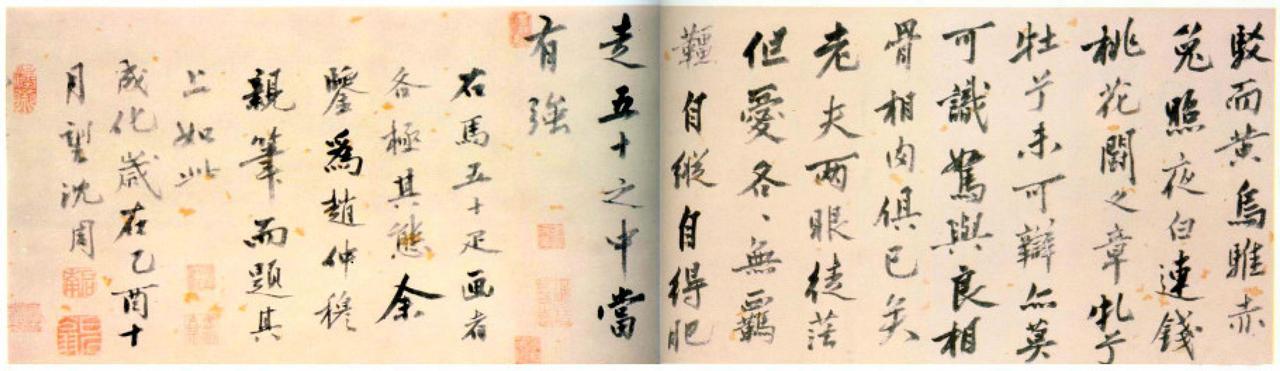 駁而黃烏騅赤
兔照夜白連錢
桃花闘之章牝兮
牡兮未可辯亦莫
可識駑與良相
骨相肉俱已矣
老夫兩眼徒茫
但愛各〻無羈
韁自縱自得肥
走五十之中當
有強
右馬五十疋画者
各極其態余
鑒爲趙仲穆
親筆而題其
上如此
成化歲在乙酉十
月望沈周